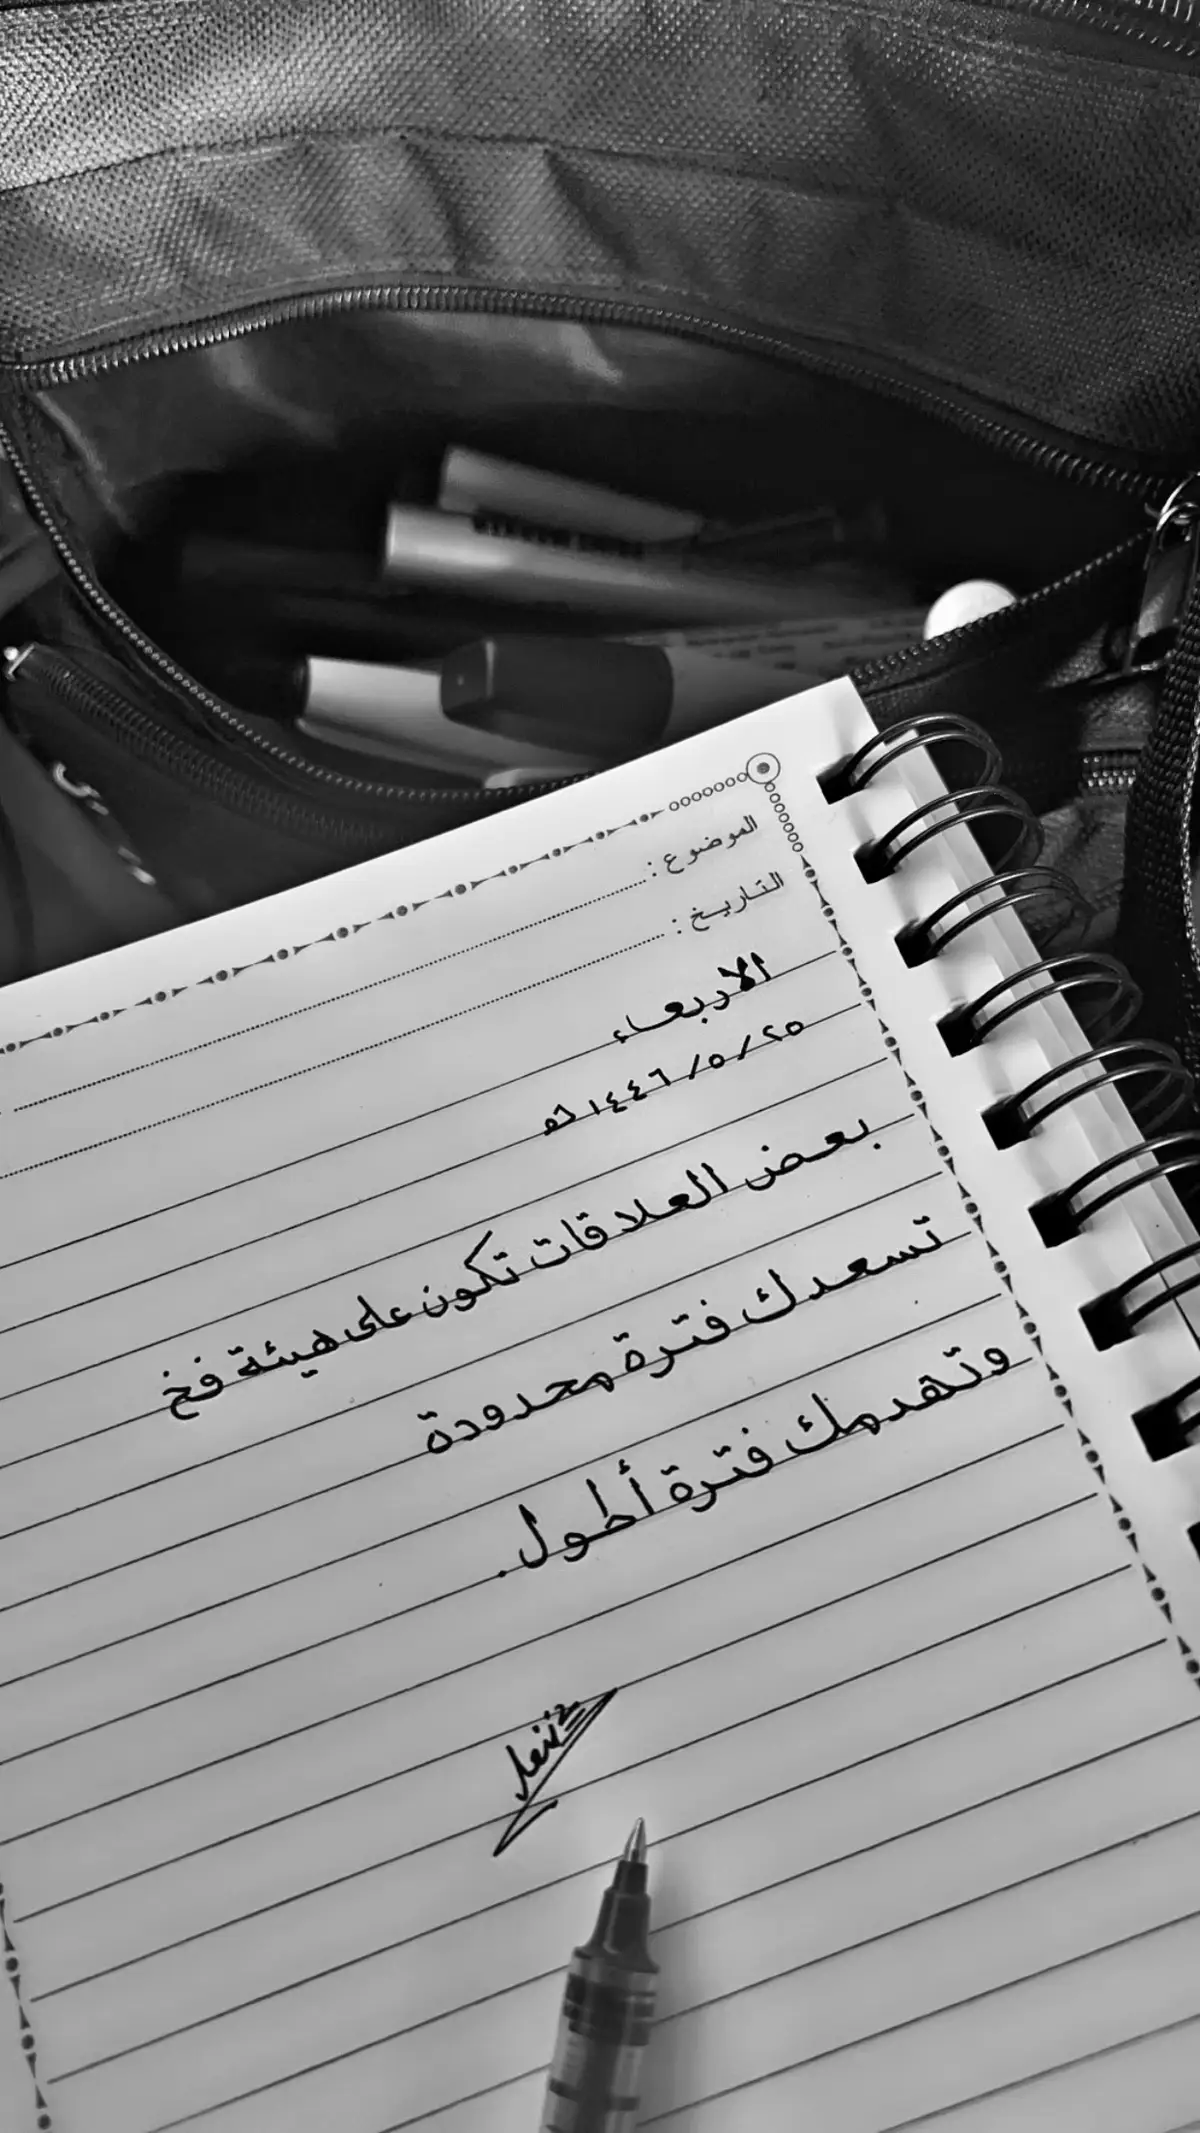 الموضوع :
التاريخ :
الاربعاء
٢٥/٥/١٤٤٦ هـ
بعض العلاقات تكون على هيئة فخ
تسعدك فترة محدودة
وتهدمك فترة أطول.